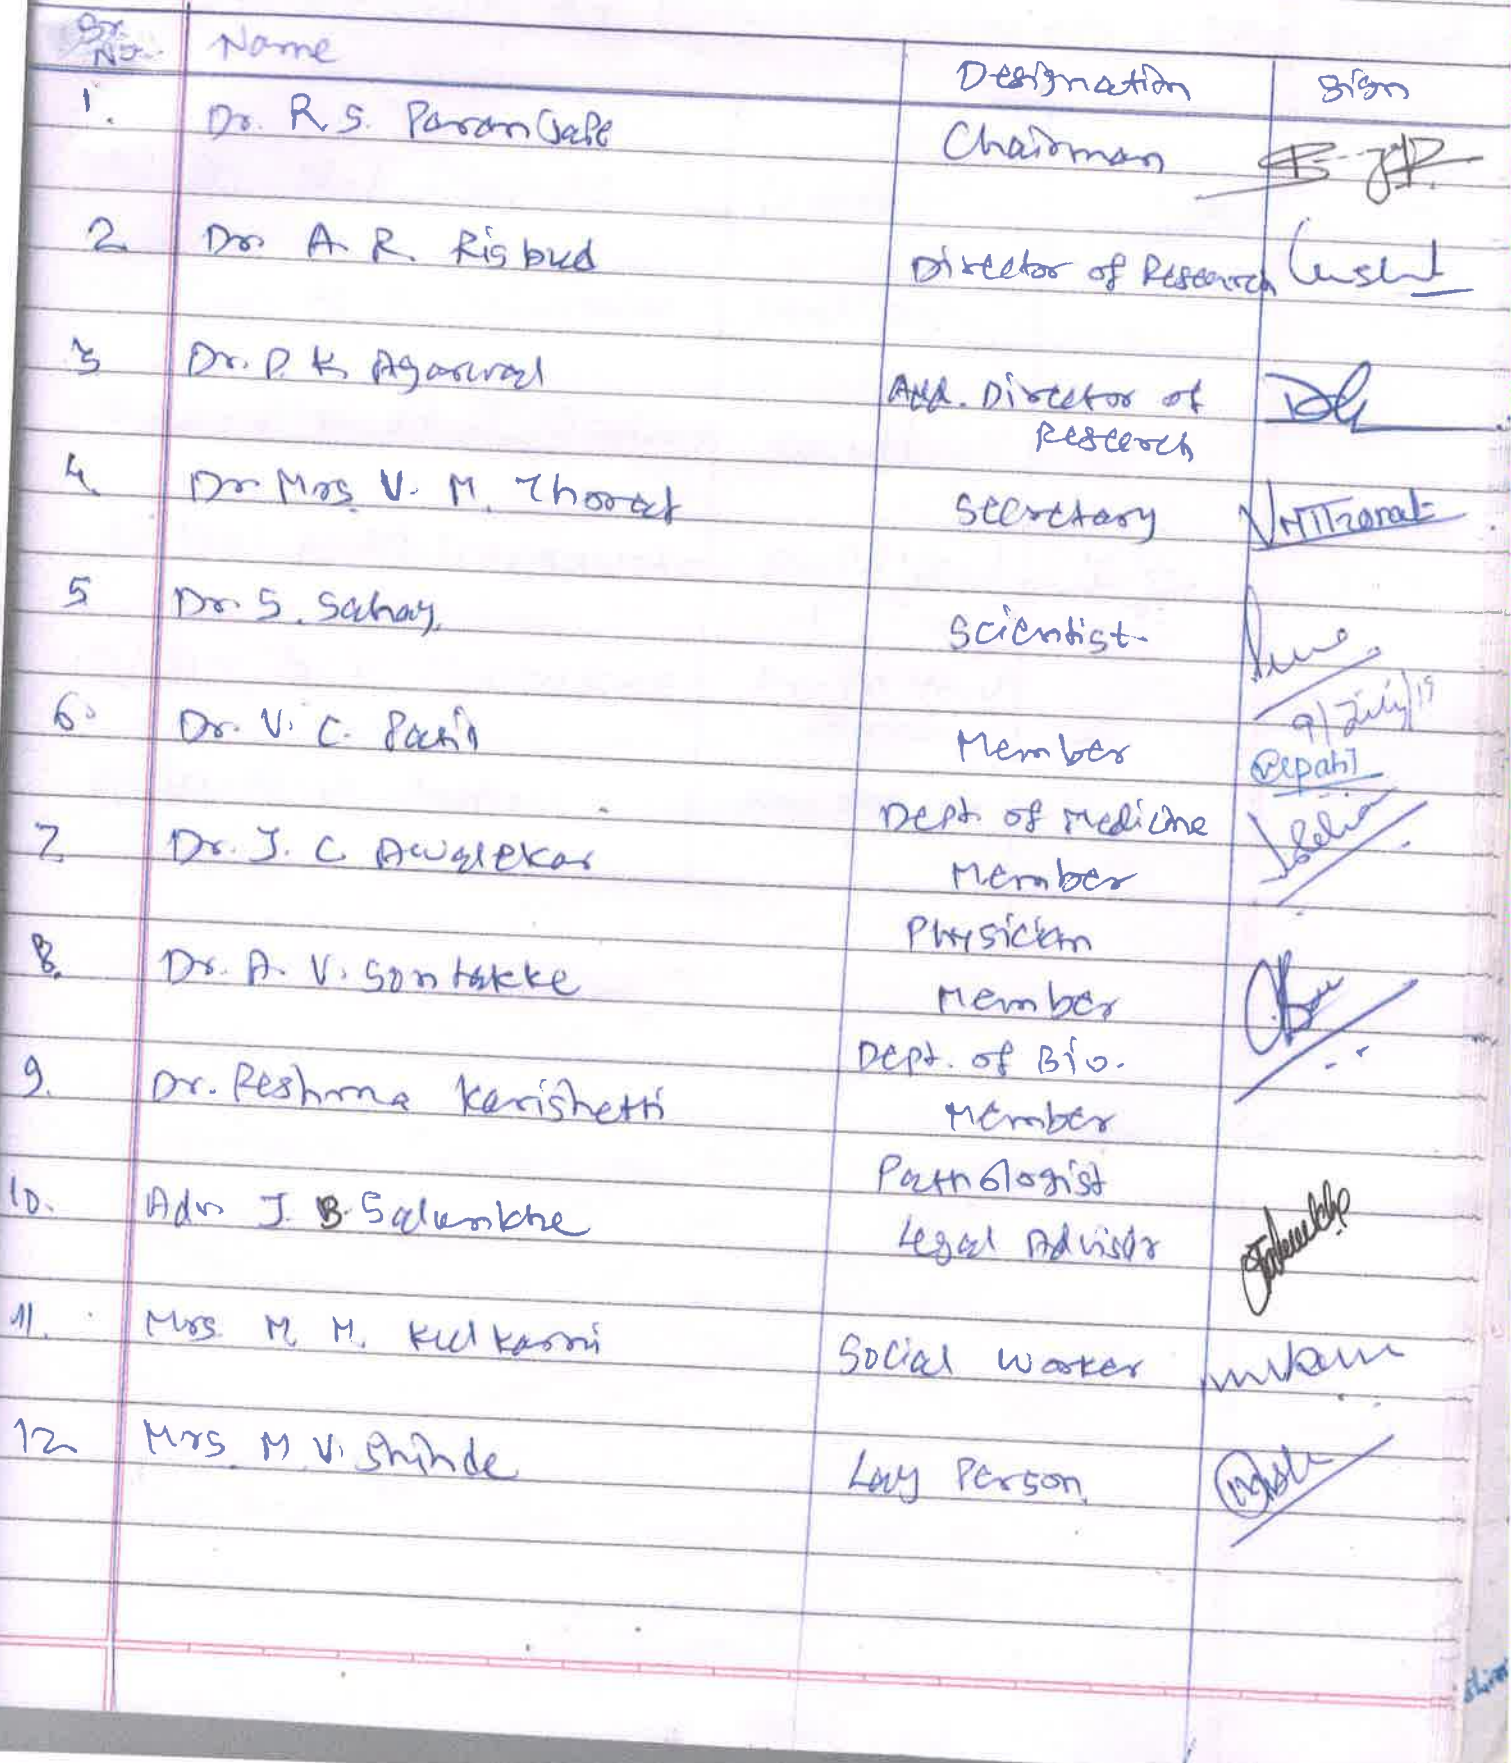 Sr. No. Name Designation Sign
1. Dr. R. S. Paranjape Chairman
2 Dr. A. R. Risbud Director of Research
3 Dr. P. K. Agarwal Add. Director of
Research
4. Dr Mrs. V. M. Thorat Secretary VMThorat
5 Dr. S. Sahay. Scientist
9/July/19
6. Dr. V. C. Patil Member Vcpatil
Dept. of Medicine
7 Dr. J. C. Awalekar Member
Physician
8. Dr. A. V. Sontakke Member
Dept. of Bio.
9. Dr. Reshma Karishetti Member
Pathologist
10. Adv. J. B. Salunkhe Legal Advisor
11. Mrs. M. M. Kulkarni Social Worker
12 Mrs. M. V. Shinde Lay Person